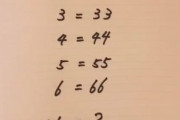 3 = 33
4 = 44
5 = 55
6 = 66